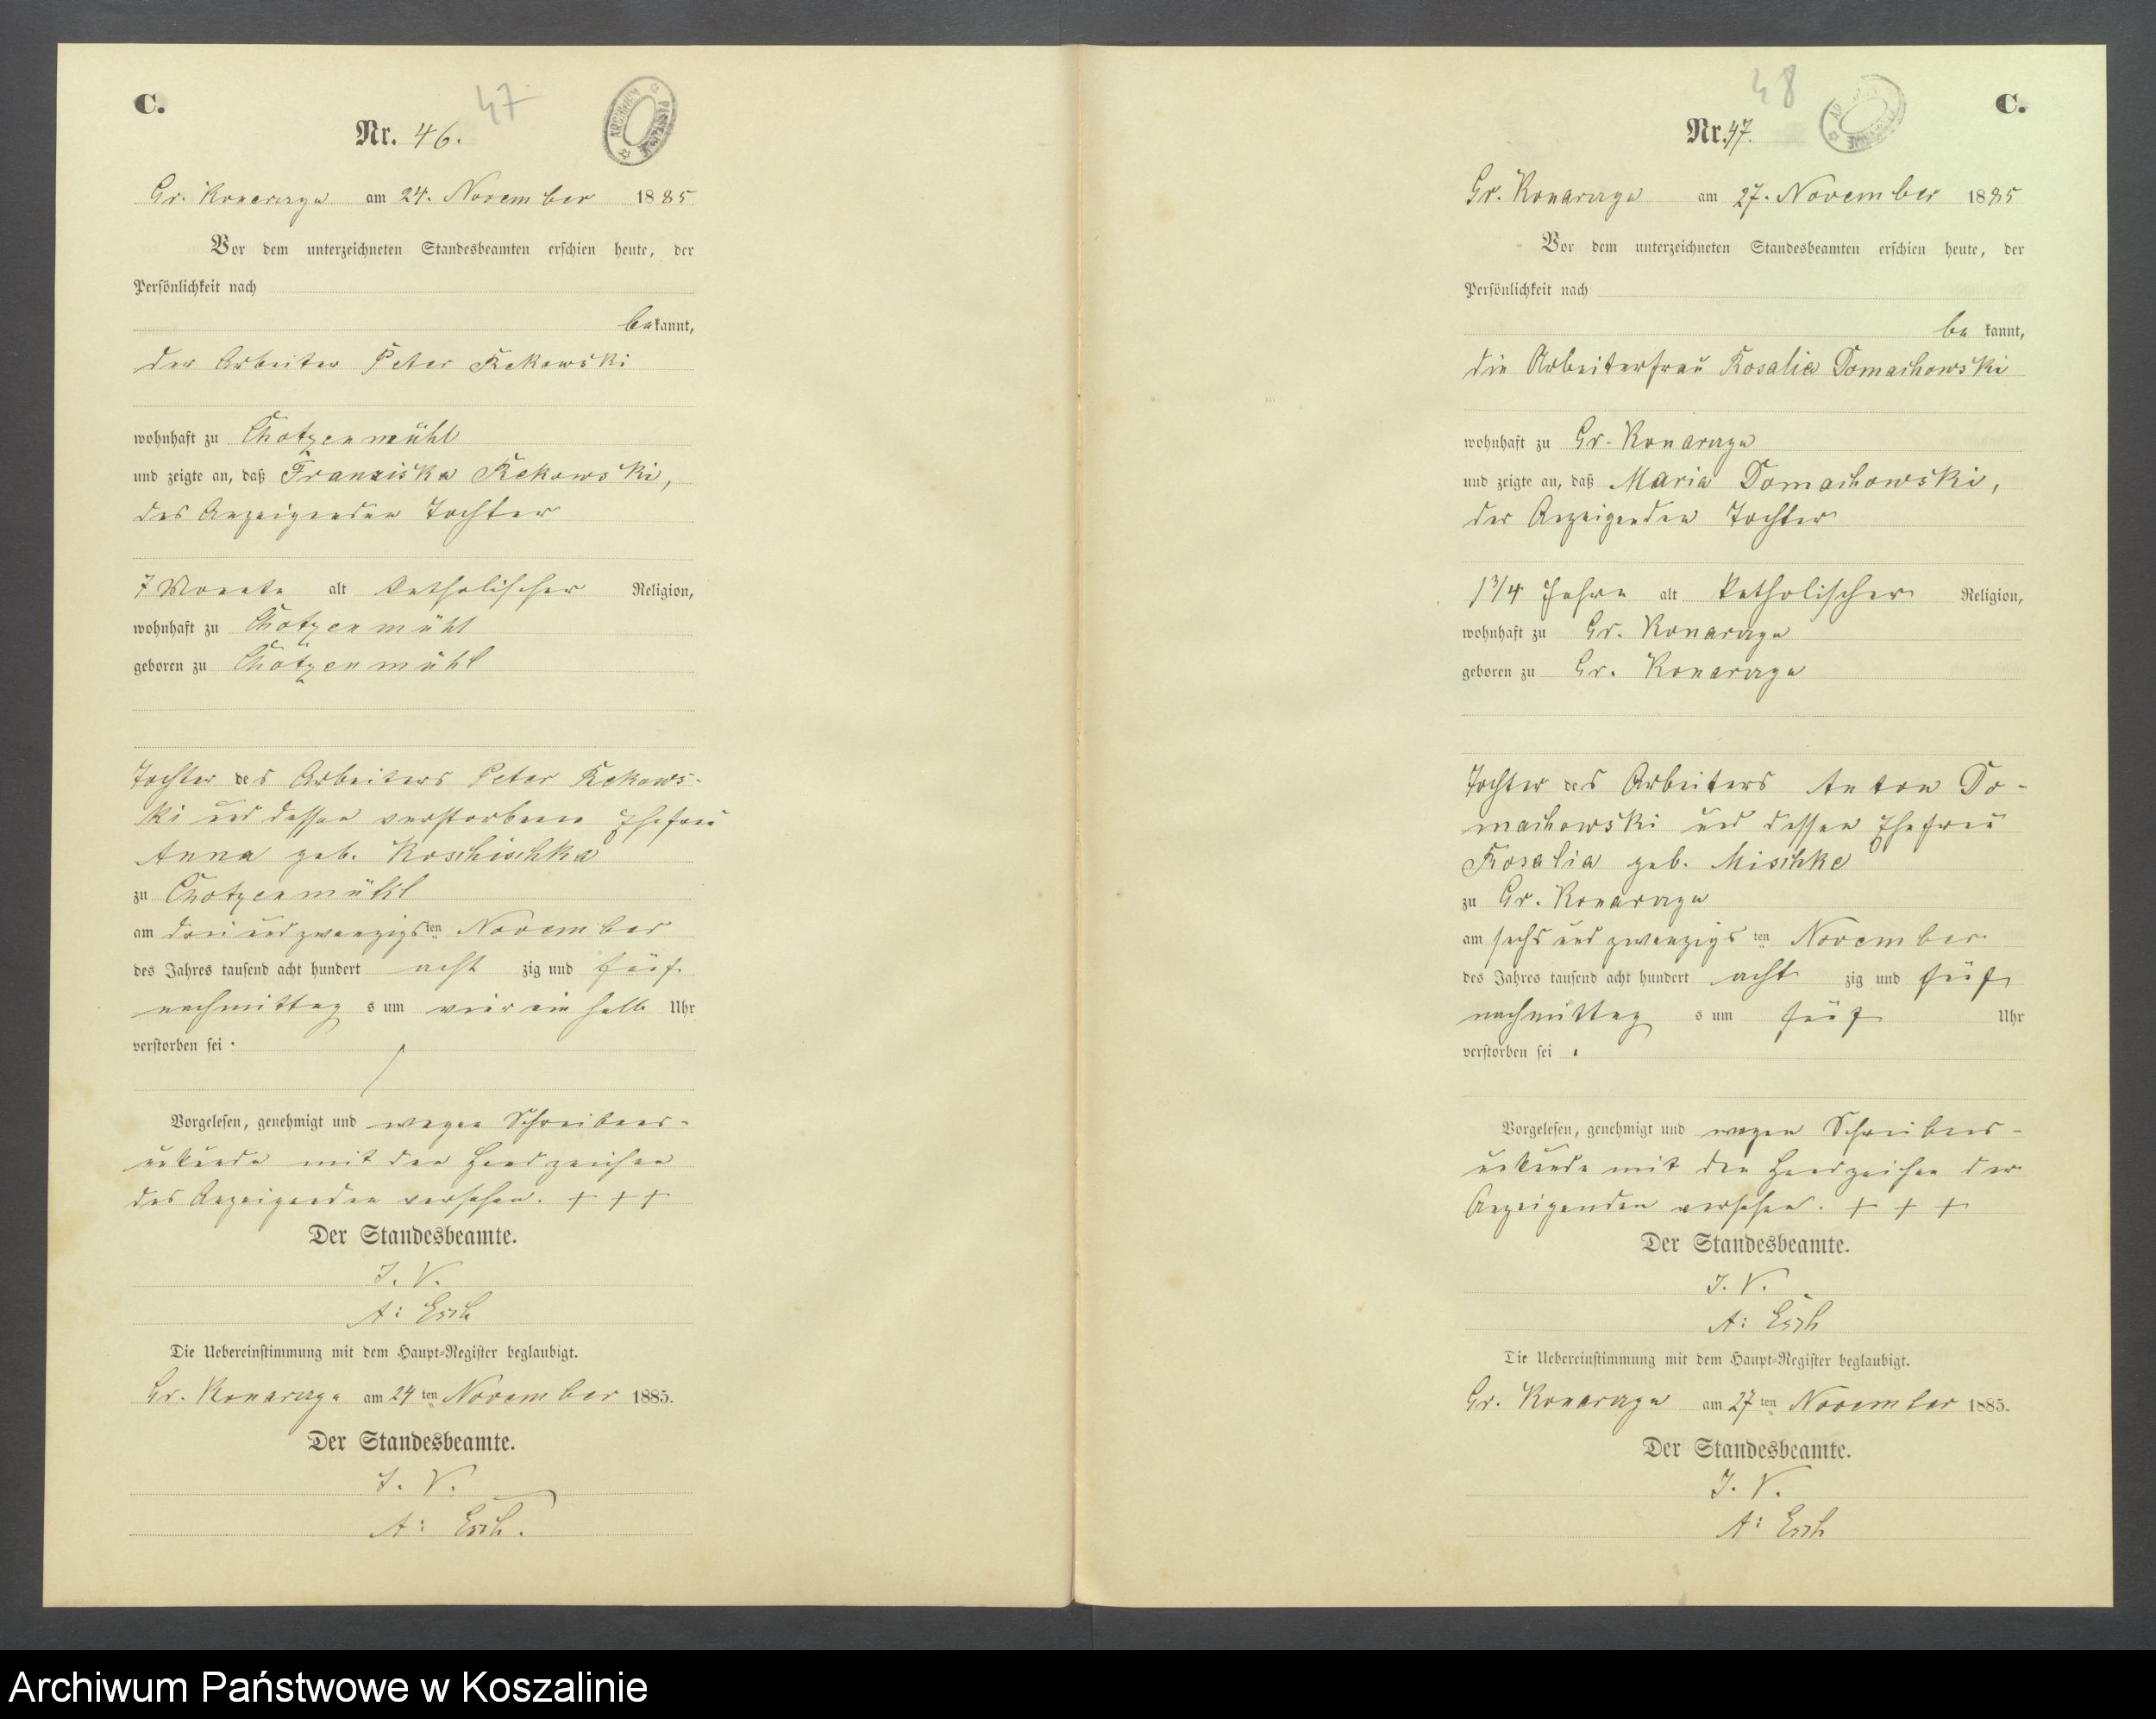 C.
47
ARCHIWUM
Nr. 46.
Gr. Konarczyn am 24. November 1885
Vor dem unterzeichneten Standesbeamten erschien heute, der
Persönlichkeit nach
bekannt,
der Arbeiter Peter Rekowski
wohnhaft zu Chotzenmühl
und zeigte an, daß Franziska Rekowski,
des Anzeigenden Tochter
7 Monate alt katholischer Religion,
wohnhaft zu Chotzenmühl
geboren zu Chotzenmühl
Tochter des Arbeiters Peter Rekows-
ki und dessen verstorbene Ehefrau
Anna geb. Koschischka
zu Chotzenmühl
am drei und zwanzigsten November
des Jahres tausend acht hundert acht zig und fünf
nachmittag s um vier ein halb Uhr
verstorben sei.
Vorgelesen, genehmigt und wegen Schreibens-
unkunde mit den Handzeichen
des Anzeigenden versehen. + + +
Der Standesbeamte.
J. V.
A: Esch
Die Uebereinstimmung mit dem Haupt-Register beglaubigt.
Gr. Konarczyn am 24 ten November 1885.
Der Standesbeamte.
J. V.
A: Esch.
48
C.
Nr. 47.
Gr. Konarczyn am 27. November 1885
Vor dem unterzeichneten Standesbeamten erschien heute, der
Persönlichkeit nach
be kannt,
die Arbeiterfrau Rosalia Domachowski
wohnhaft zu Gr. Konarczyn
und zeigte an, daß Maria Domachowski,
der Anzeigenden Tochter
1 3/4 Jahre alt katholischer Religion,
wohnhaft zu Gr. Konarczyn
geboren zu Gr. Konarczyn
Tochter des Arbeiters Anton Do-
machowski und dessen Ehefrau
Rosalia geb. Mischke
zu Gr. Konarczyn
am sechs und zwanzigs ten November
des Jahres tausend acht hundert acht zig und fünf
nachmittag s um fünf Uhr
verstorben sei.
Vorgelesen, genehmigt und wegen Schreibens-
unkunde mit den Handzeichen der
Anzeigenden versehen. + + +
Der Standesbeamte.
J. V.
A: Esch
Die Uebereinstimmung mit dem Haupt-Register beglaubigt.
Gr. Konarczyn am 27 ten November 1885.
Der Standesbeamte.
J. V.
A: Esch
Archiwum Państwowe w Koszalinie